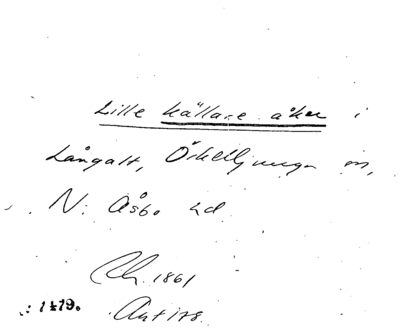 Lille källare åker i
Långalt, Örkelljunga sn,
N: Åsbo hd
Rh. 1861
Akt 178.
: 1479.